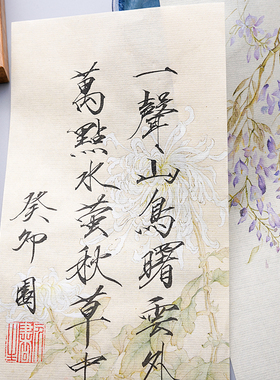 一聲山鳥曙雲外
萬點水螢秋草中
癸卯園